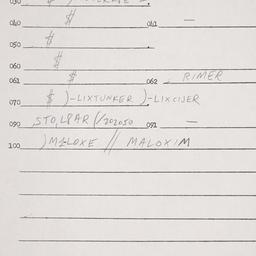 030 $
040 $ 041 —
050 $
060 $
061 $ 062 , RIMER
070 $ )-LIXTUNKER )-LIXCIJER
090 ,STO,LPAR (/202050 091 —
100 )MALOXE // MALOXIM